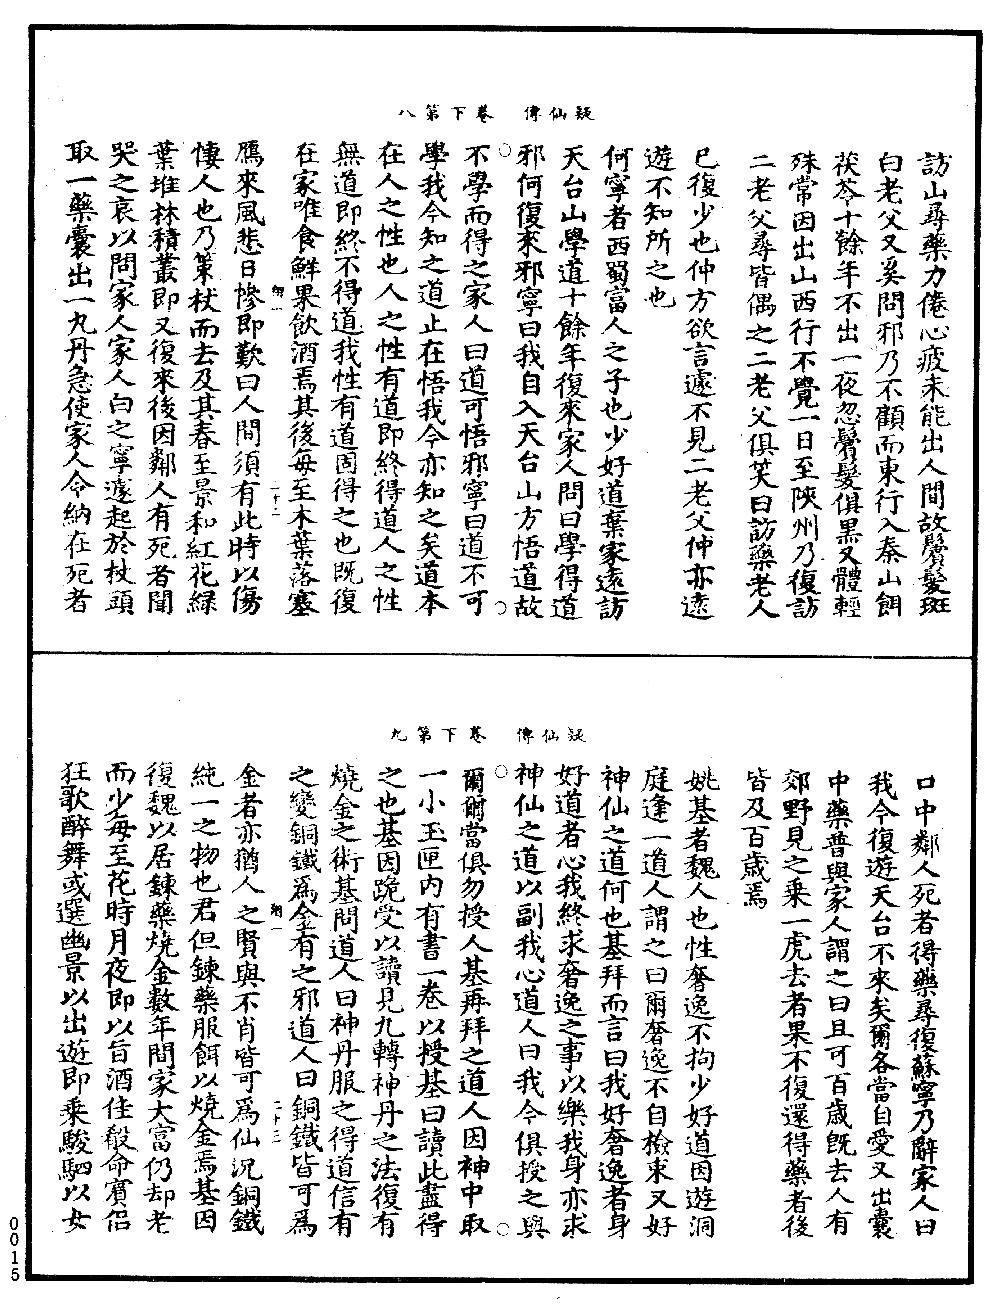 疑仙傳　卷下第八
訪山尋藥力倦心疲未能出人間故鬢髮斑
白老父又奚問邪乃不顧而東行入秦山餌
茯苓十餘年不出一夜忽鬢髮俱黑又體輕
殊常因出山西行不覺一日至陝州乃復訪
二老父尋皆偶之二老父俱笑曰訪藥老人
已復少也仲方欲言遽不見二老父仲亦遠
遊不知所之也
何寧者西蜀富人之子也少好道棄家遠訪
天台山學道十餘年復來家人問曰學得道
邪何復來邪寧曰我自入天台山方悟道故
不學而得之家人曰道可悟邪寧曰道不可
學我今知之道止在悟我今亦知之矣道本
在人之性也人之性有道即終得道人之性
無道即終不得道我性有道固得之也既復
在家唯食鮮果飲酒焉其後每至木葉落塞
鴈來風悲日慘即歎曰人間須有此時以傷
悽人也乃策杖而去及其春至景和紅花綠
葉堆林積叢即又復來後因鄰人有死者聞
哭之哀以問家人家人白之寧遽起於杖頭
取一藥囊出一丸丹急使家人令納在死者
疑仙傳　卷下第九
口中鄰人死者得藥尋復蘇寧乃辭家人曰
我今復遊天台不來矣爾各當自愛又出囊
中藥普與家人謂之曰且可百歲既去人有
郊野見之乘一虎去者果不復還得藥者後
皆及百歲焉
姚基者魏人也性奢逸不拘少好道因遊洞
庭逢一道人謂之曰爾奢逸不自檢求又好
神仙之道何也基拜而言曰我好奢逸者身
好道者心我終求奢逸之事以樂我身亦求
神仙之道以副我心道人曰我今俱授之與
爾爾當俱勿授人基再拜之道人因神中取
一小玉匣內有書一卷以授基曰讀此盡得
之也基因跪受以讀見九轉神丹之法復有
燒金之術基問道人曰神丹服之得道信有
之變銅鐵爲金有之邪道人曰銅鐵皆可爲
金者亦猶人之賢與不肖皆可爲仙況銅鐵
純一之物也君但鍊藥服餌以燒金焉基因
復魏以居鍊藥燒金數年間家大富仍却老
而少每至花時月夜即以旨酒佳殽命賓侶
狂歌醉舞或選幽景以出遊即乘駿駟以女
0015